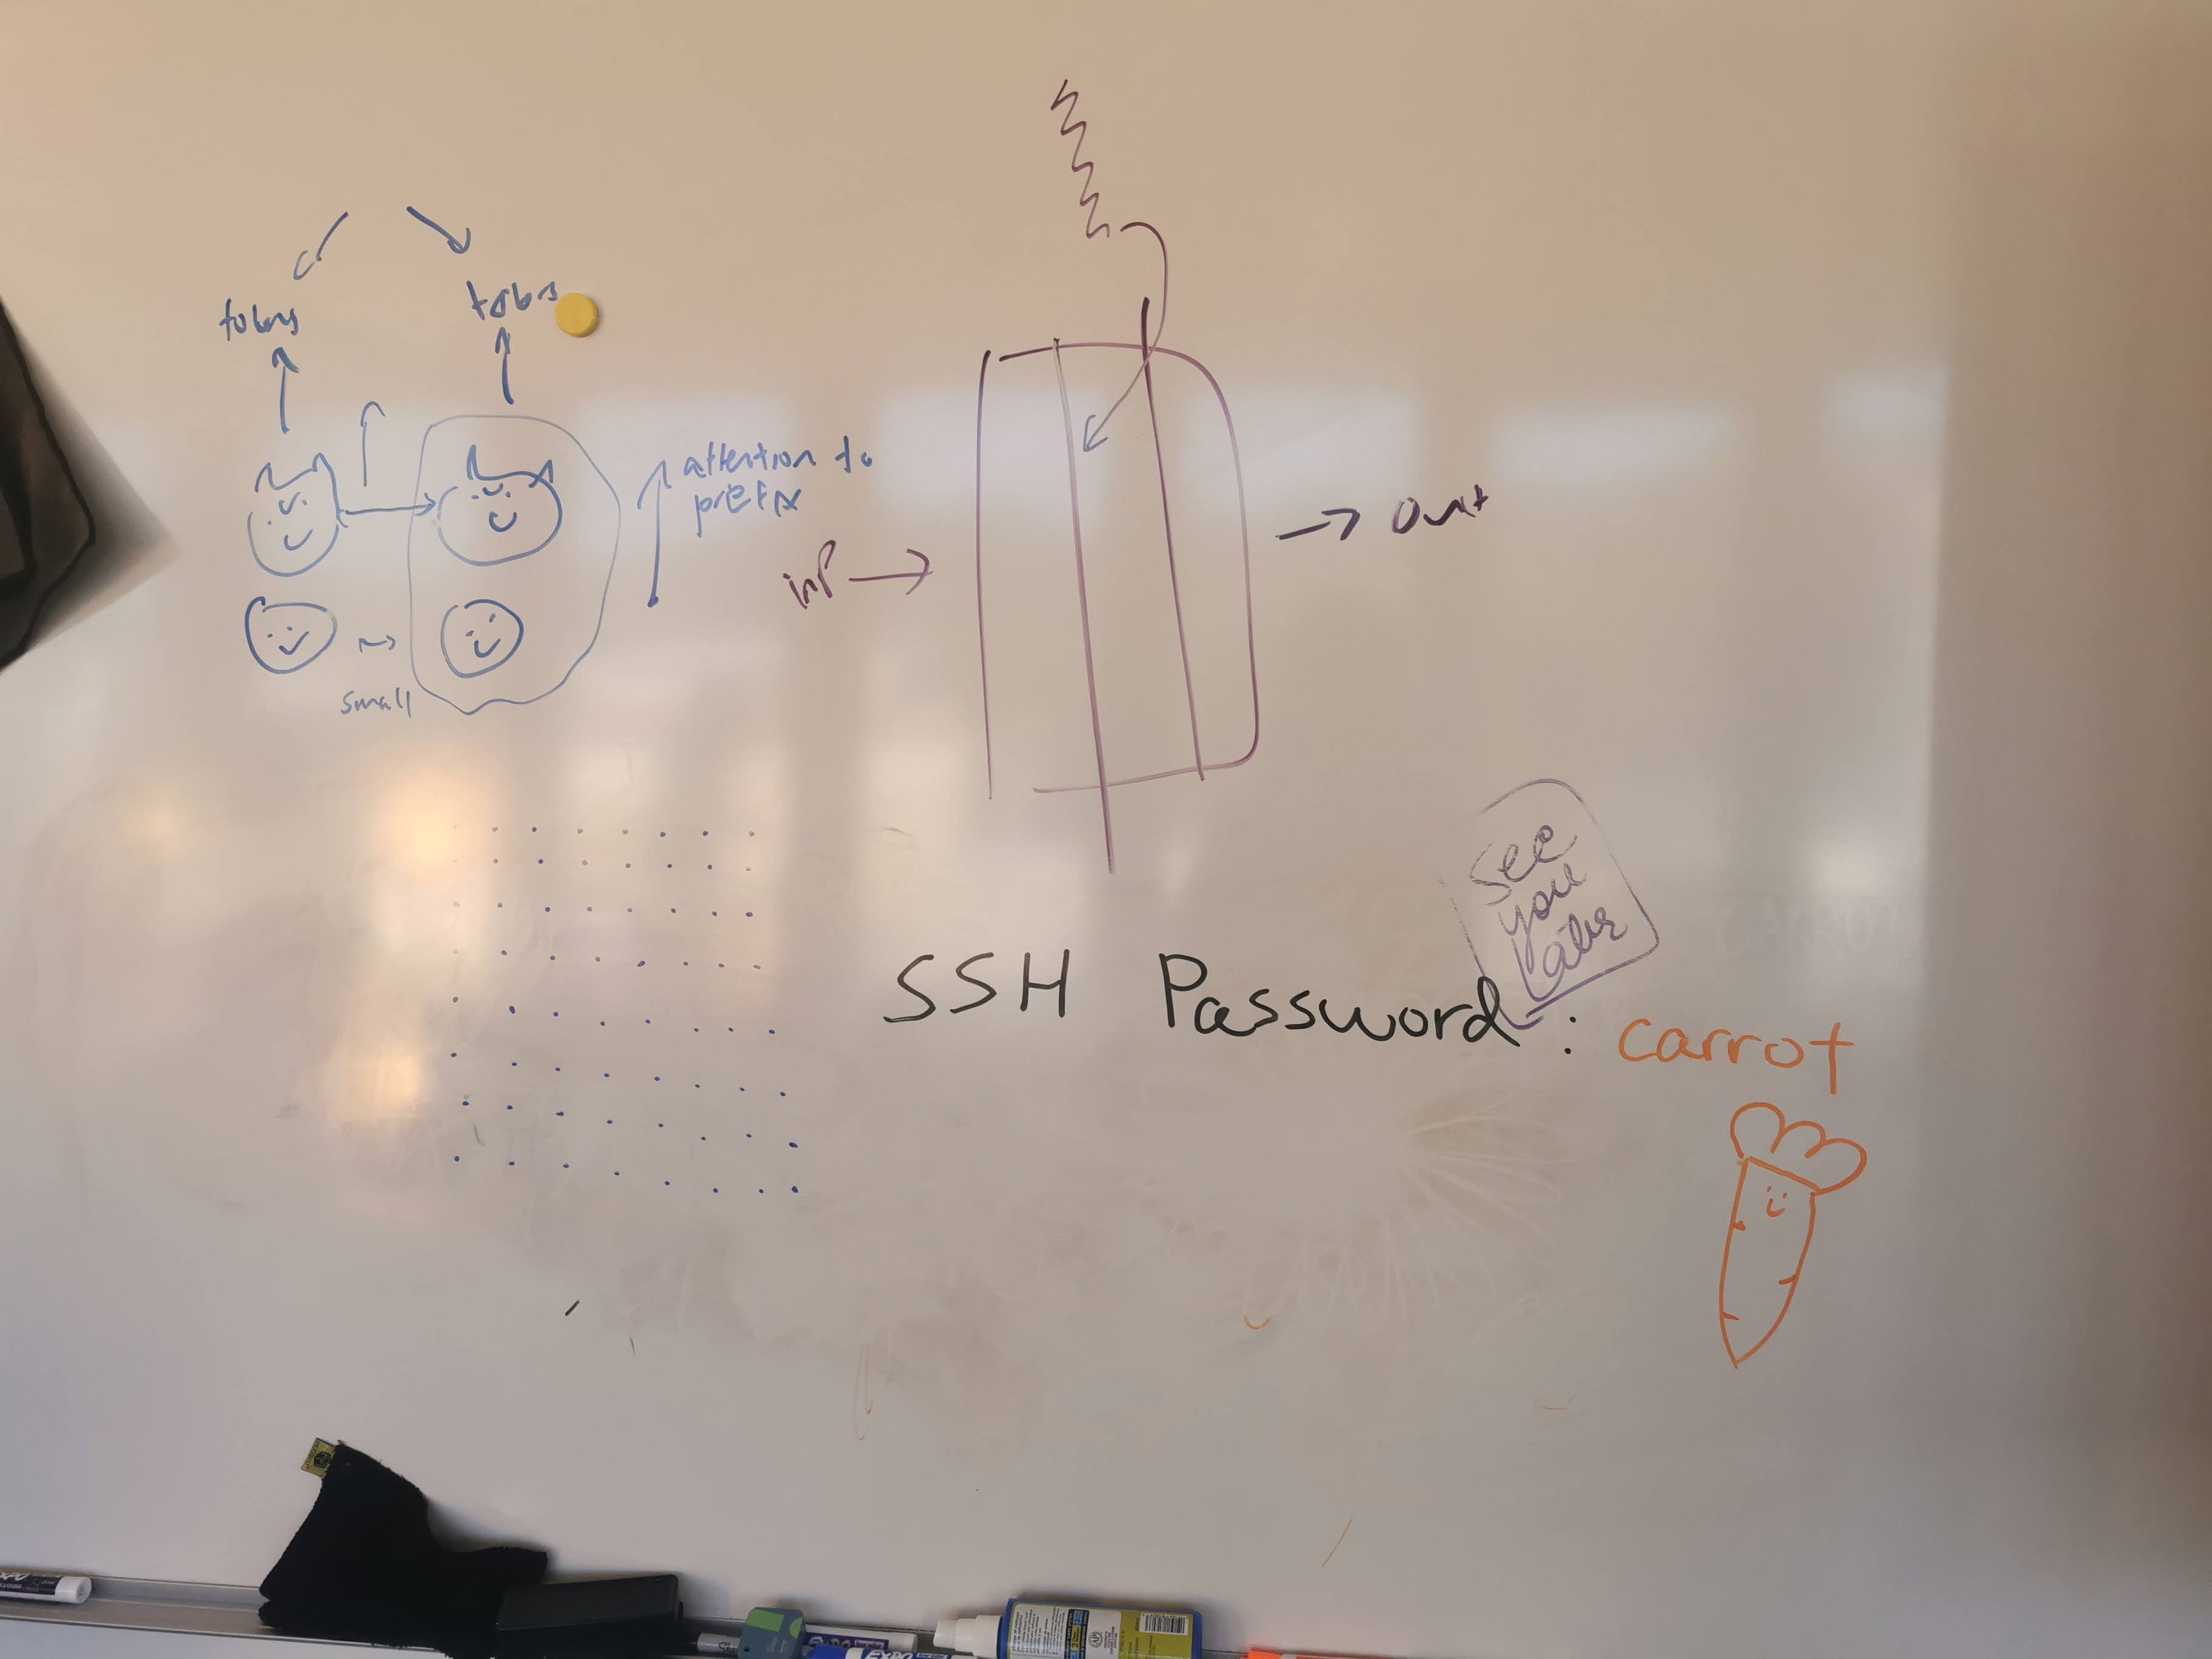 tokens
tokens
attention to
prefix
small
inp
out
See
you
later
SSH Password: carrot
EXPO